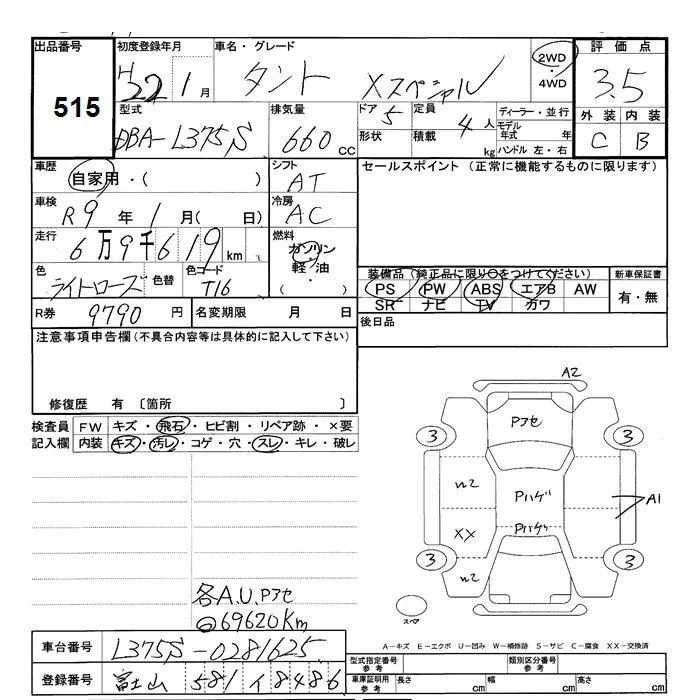 出品番号
515
初度登録年月
H22 1月
車名・グレード
タント Xスペシャル
2WD
・
4WD
評価点
3.5
外装 内装
C B
型式
DBA-L375S
排気量
660 CC
ドア 5
形状
定員 4人
積載 kg
ディーラー・並行
モデル年式 年
ハンドル 左・右
車歴
自家用・( )
シフト
AT
セールスポイント (正常に機能するものに限ります)
車検
R9年1月( 日)
冷房
AC
走行
6万9千619km
燃料
ガソリン
軽・油
( ・ )
色
ライトローズ
色替
色コード
T16
装備品(純正品に限り○をつけてください)
PS PW ABS エアB AW
SR ナビ TV カワ
新車保証書
有・無
R券 9790円
名変期限 月 日
後日品
注意事項申告欄(不具合内容等は具体的に記入して下さい)
修復歴 有 〔箇所 〕
検査員記入欄
FW キズ・飛石・ヒビ割・リペア跡・×要
内装 キズ・汚レ・コゲ・穴・スレ・キレ・破レ
A2
Pアセ
3 3
W2 Pハゲ A1
XX Pハゲ
3 3
W2
スペア
各A.U.Pアセ
69620Km
A-キズ E-エクボ U-凹み W-補修跡 S-サビ C-腐食 XX-交換済
車台番号 L375S-0281625
登録番号 富士山 581 イ 8486
型式指定番号 参考
類別区分番号 参考
車庫証明用 参考
長さ cm 幅 cm 高さ cm